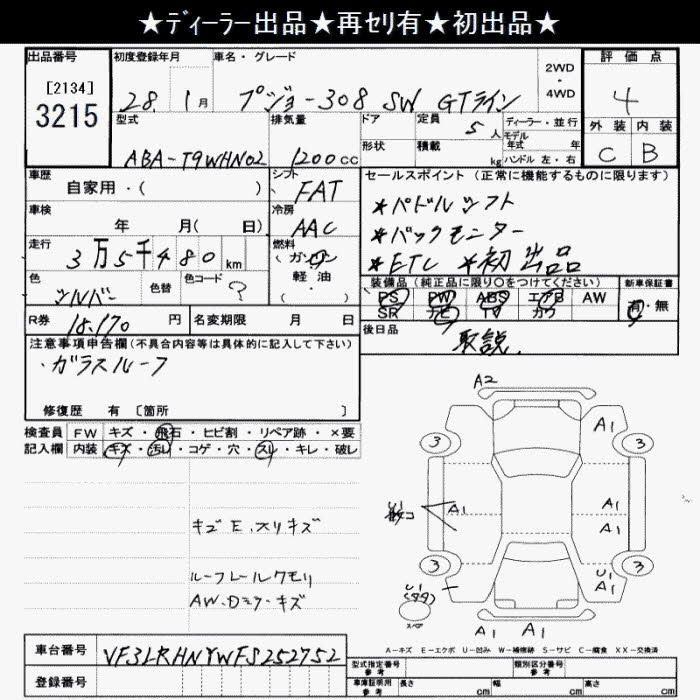 ★ディーラー出品★再セリ有★初出品★
出品番号
[2134]
3215
初度登録年月
28. 1 月
車名・グレード
プジョー308 SW GTライン
2WD
・
4WD
評価点
4
外装 内装
C B
型式
ABA-T9WHN02
排気量
1200 cc
ドア
形状
定員
5 人
積載
kg
ディーラー・並行
モデル年式 年
ハンドル 左・右
車歴
自家用・( )
シフト
FAT
車検
年 月( 日)
冷房
AAC
走行
3万5千480 km
燃料
ガソリン
軽・油
色
シルバー
色替
色コード
?
セールスポイント (正常に機能するものに限ります)
★パドルシフト
★バックモニター
★ETC ★初出品
装備品 (純正品に限り○をつけてください)
新車保証書
PS PW ABS エアB AW
SR ナビ TV カワ
有・無
R券 18,170 円
名変期限 月 日
後日品
取説.
注意事項申告欄 (不具合内容等は具体的に記入して下さい)
・ガラスルーフ
修復歴 有 [箇所 ]
検査員
記入欄
FW キズ・飛石・ヒビ割・リペア跡・×要
内装 キズ・汚れ・コゲ・穴・スレ・キレ・破レ
キズE.スリキズ
ルーフレールクモリ
AW.Dミラーキズ
A2
A1
3 3
U1
A1 A1
A1
3 3
U1
A1
U1
スペア
A1 A1
A-キズ E-エクボ U-凹み W-補修跡 S-サビ C-腐食 XX-交換済
車台番号
VF3LRHNYWFS252752
登録番号
型式指定番号
参考
類別区分番号
参考
車庫証明用
参考
長さ cm 幅 cm 高さ cm